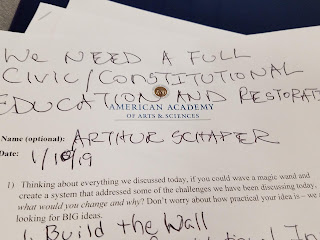 WE NEED A FULL
CIVIC/CONSTITUTIONAL
EDUCATION AND RESTORATI
AMERICAN ACADEMY
OF ARTS & SCIENCES
Name (optional): ARTHUR SCHAPER
Date: 1/10/19
1) Thinking about everything we discussed today, if you could wave a magic wand and
create a system that addressed some of the challenges we have been discussing today,
what would you change and why? Don't worry about how practical your idea is – we a
looking for BIG ideas.
1. Build the Wall